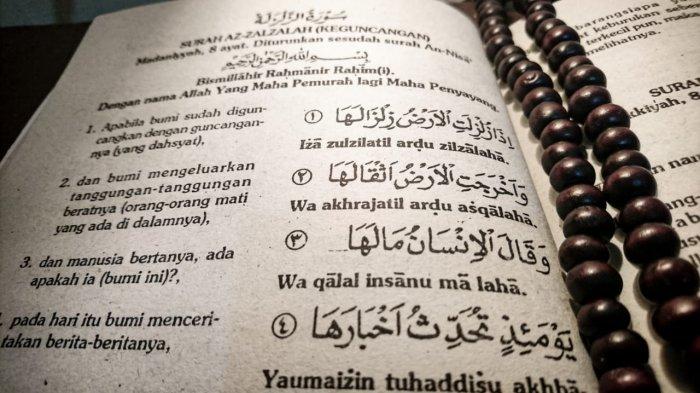 سُوْرَةُ الزَّلْزَلَةِ
SURAH AZ-ZALZALAH (KEGUNCANGAN)
Madaniyyah, 8 ayat. Diturunkan sesudah surah An-Nisā'
بِسْمِ اللهِ الرَّحْمٰنِ الرَّحِيْمِ
Bismillāhir Raḥmānir Raḥīm(i).
Dengan nama Allah Yang Maha Pemurah lagi Maha Penyayang.
1. Apabila bumi sudah digun-
cangkan dengan guncangan-
nya (yang dahsyat),
اِذَا زُلْزِلَتِ الْاَرْضُ زِلْزَالَهَا ١
Iżā zulzilatil arḍu zilzālahā.
2. dan bumi mengeluarkan
tanggungan-tanggungan
beratnya (orang-orang mati
yang ada di dalamnya),
وَاَخْرَجَتِ الْاَرْضُ اَثْقَالَهَا ٢
Wa akhrajatil arḍu aṡqālahā.
3. dan manusia bertanya, ada
apakah ia (bumi ini)?,
وَقَالَ الْاِنْسَانُ مَالَهَا ٣
Wa qālal insānu mā lahā.
. pada hari itu bumi menceri-
takan berita-beritanya,
يَوْمَئِذٍ تُحَدِّثُ اَخْبَارَهَا ٤
Yaumaiżin tuḥaddiṡu akhbā.
barangsiapa
keburukan se
terkecil pun,
melihatnya.
SURA